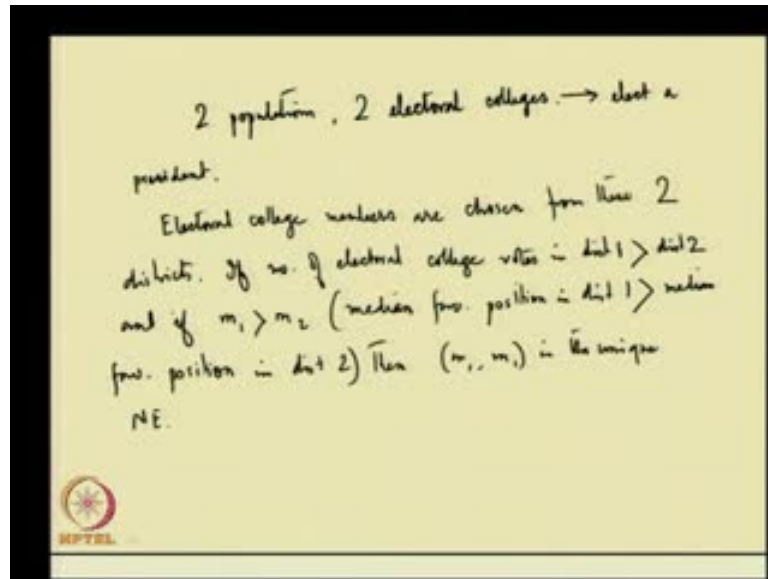 2 populations, 2 electoral colleges. → elect a
president.
Electoral college members are chosen from these 2
districts. If no. of electoral college votes in dist 1 > dist 2
and if m₁ > m₂ (median fav. position in dist 1 > median
fav. position in dist 2) Then (m₁, m₁) is the unique
NE.
NPTEL